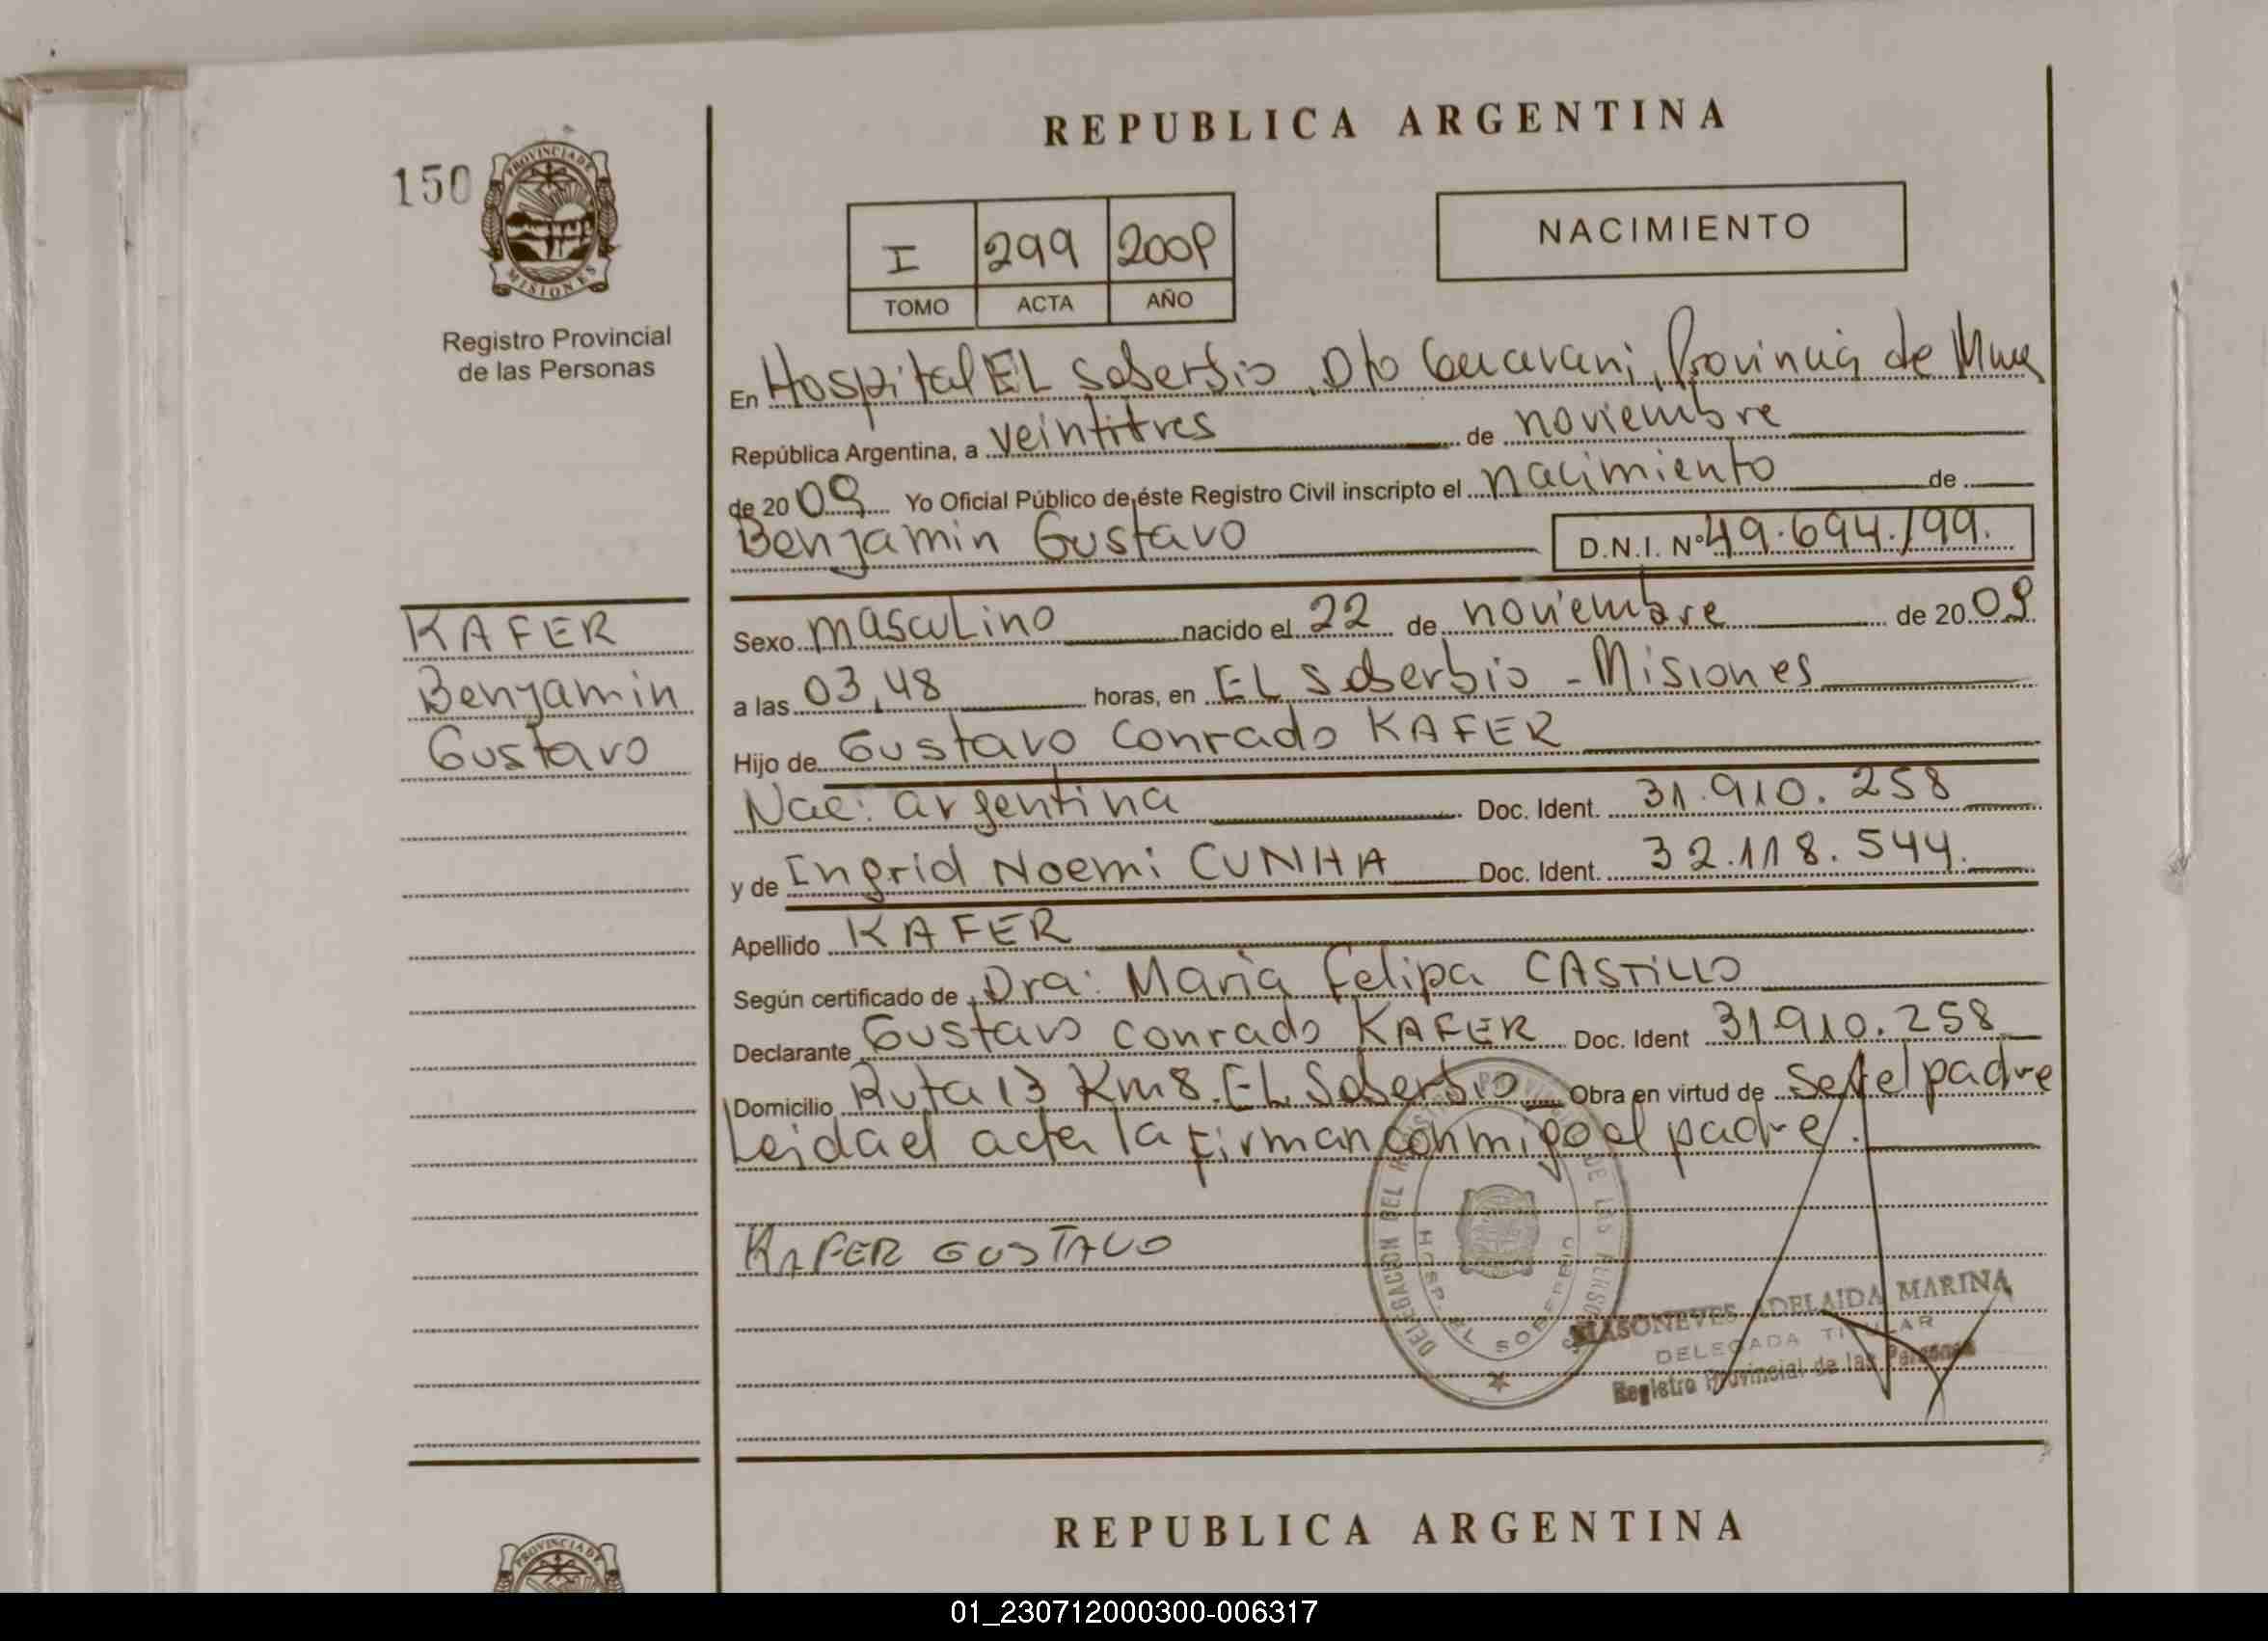 REPUBLICA ARGENTINA
150
PROVINCIA DE
MISIONES
Registro Provincial
de las Personas
I 299 2009
TOMO ACTA AÑO
NACIMIENTO
En Hospital EL Soberbio, Dto Guarani, Provincia de Mnes
República Argentina, a veintitres de noviembre
de 2009 Yo Oficial Público de éste Registro Civil inscripto el nacimiento de
Benjamin Gustavo D.N.I. Nº 49.694.199.
KAFER
Benjamin
Gustavo
Sexo masculino nacido el 22 de noviembre de 2009
a las 03,48 horas, en EL Soberbio - Misiones
Hijo de Gustavo Conrado KAFER
Nac: argentina Doc. Ident. 31.910.258
y de Ingrid Noemi CUNHA Doc. Ident. 32.118.544.
Apellido KAFER
Según certificado de Dra: Maria Felipa CASTILLO
Declarante Gustavo Conrado KAFER Doc. Ident 31.910.258
Domicilio Ruta 13 Km 8. EL Soberbio Obra en virtud de ser el padre
Leida el acta la firman conmigo el padre.
KAFER GUSTAVO
DELEGACION DEL REGISTRO PROVINCIAL DE LAS PERSONAS
HOSP. EL SOBERBIO
MASONEVES ADELAIDA MARINA
DELEGADA TITULAR
Registro Provincial de las Personas
REPUBLICA ARGENTINA
PROVINCIA DE
01_230712000300-006317